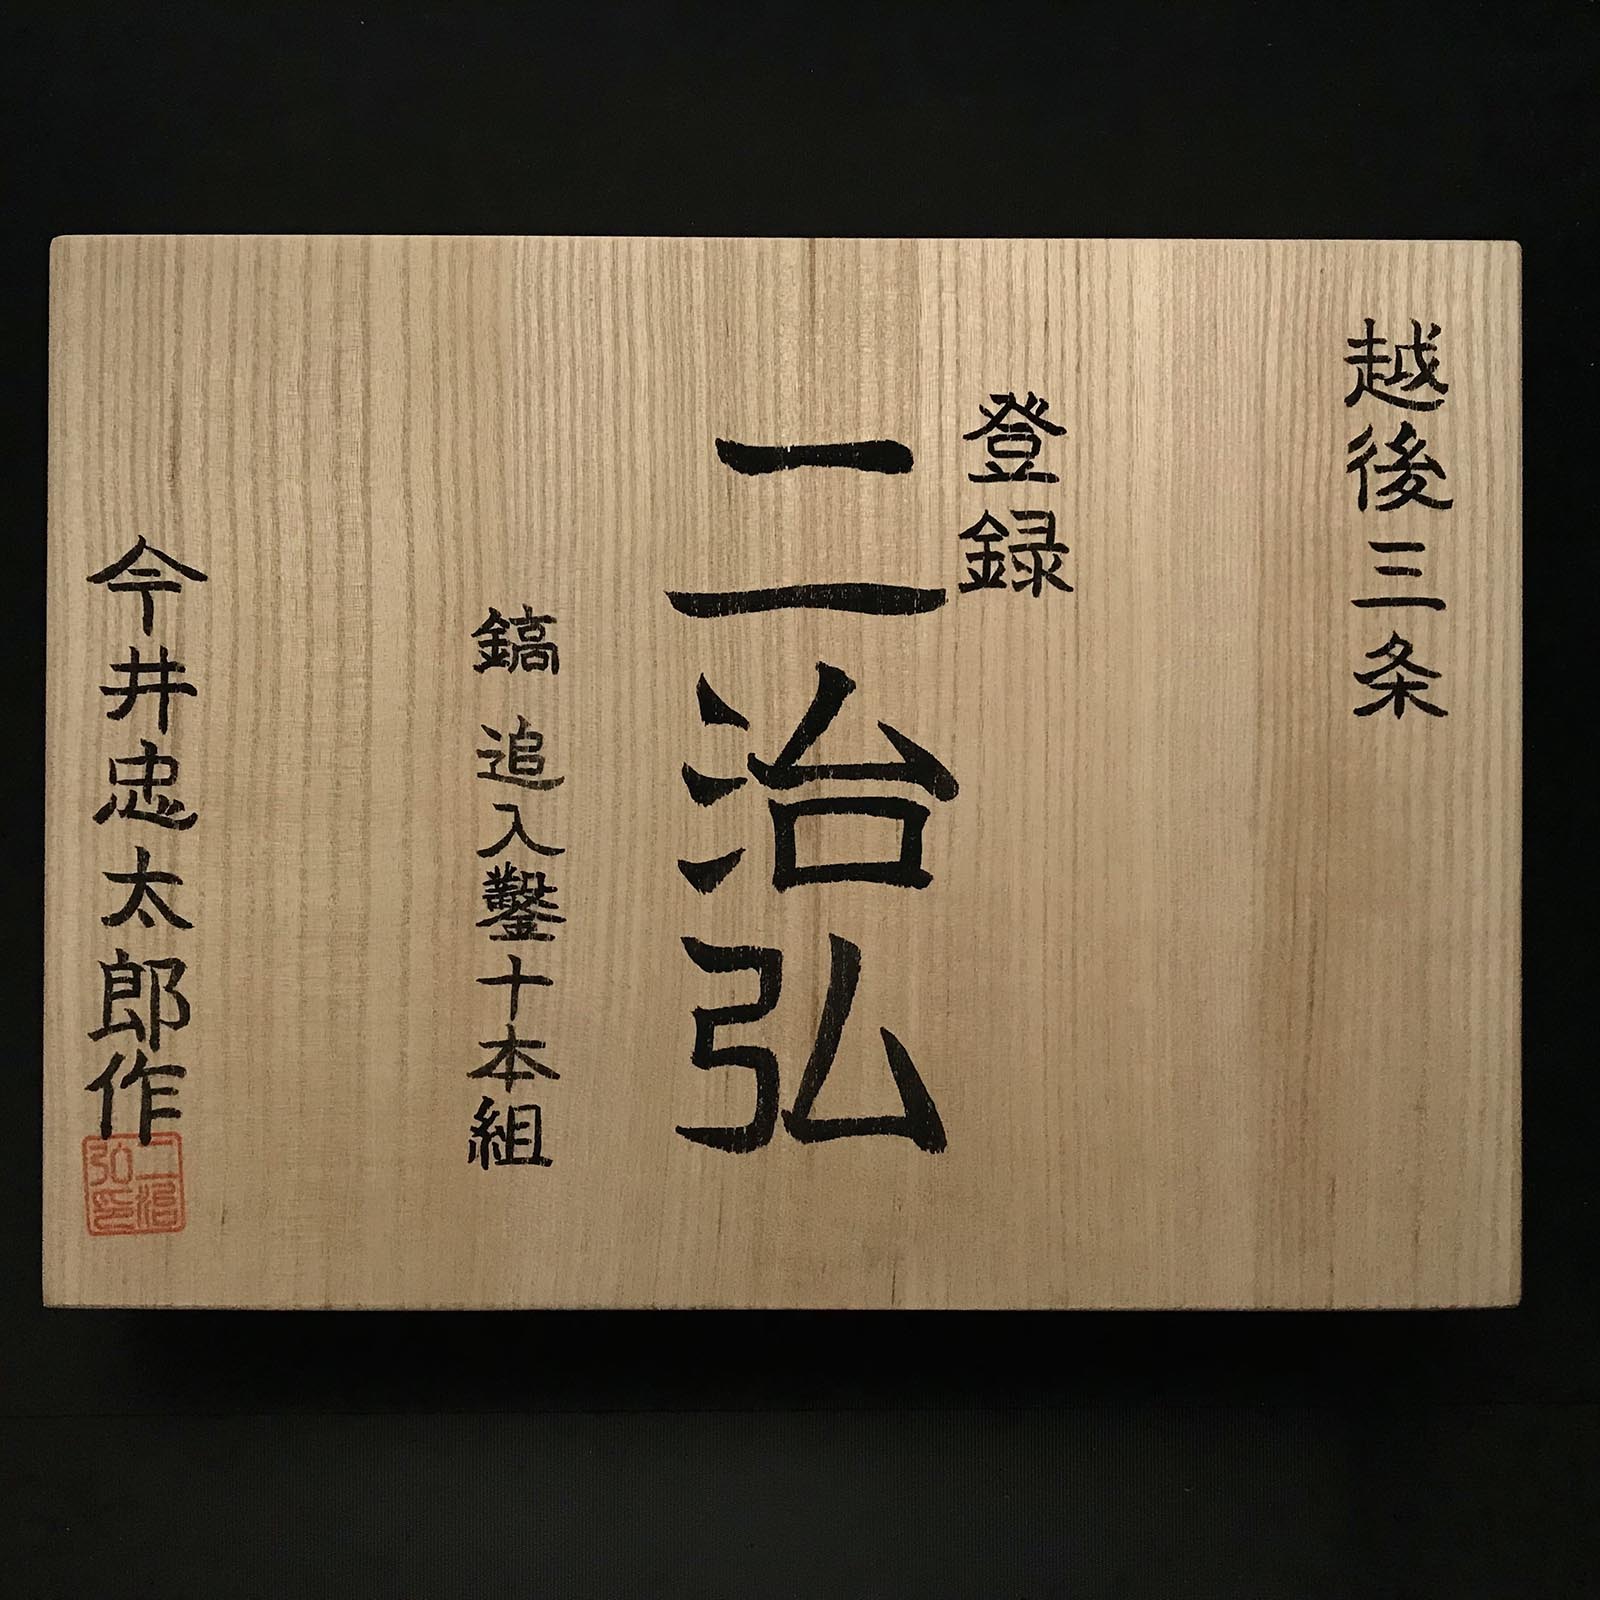 越後三条
登録
二治弘
鎬 追入鑿十本組
今井忠太郎作
二治
弘印